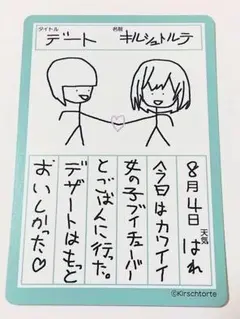 タイトル デート 名前 キルシュトルテ
8月4日 天気 はれ
今日はカワイイ
女の子ブイチューバー
とごはんに行った。
デザートはもっと
おいしかった♡
©Kirschtorte